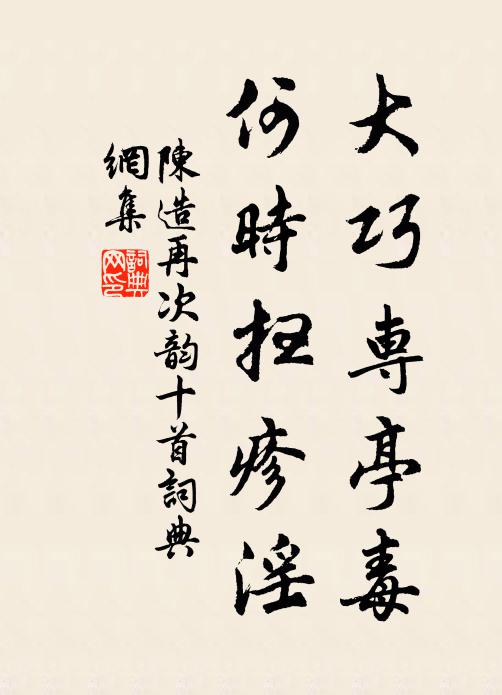 大巧専亭毒
何時扭疹淫
陳造再次韵十首詞典
網集
詞典
网印